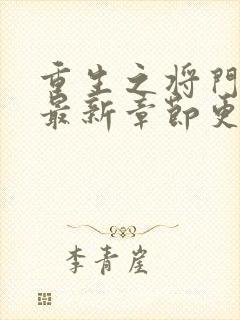 重生之将门
最新章节更
李青崖